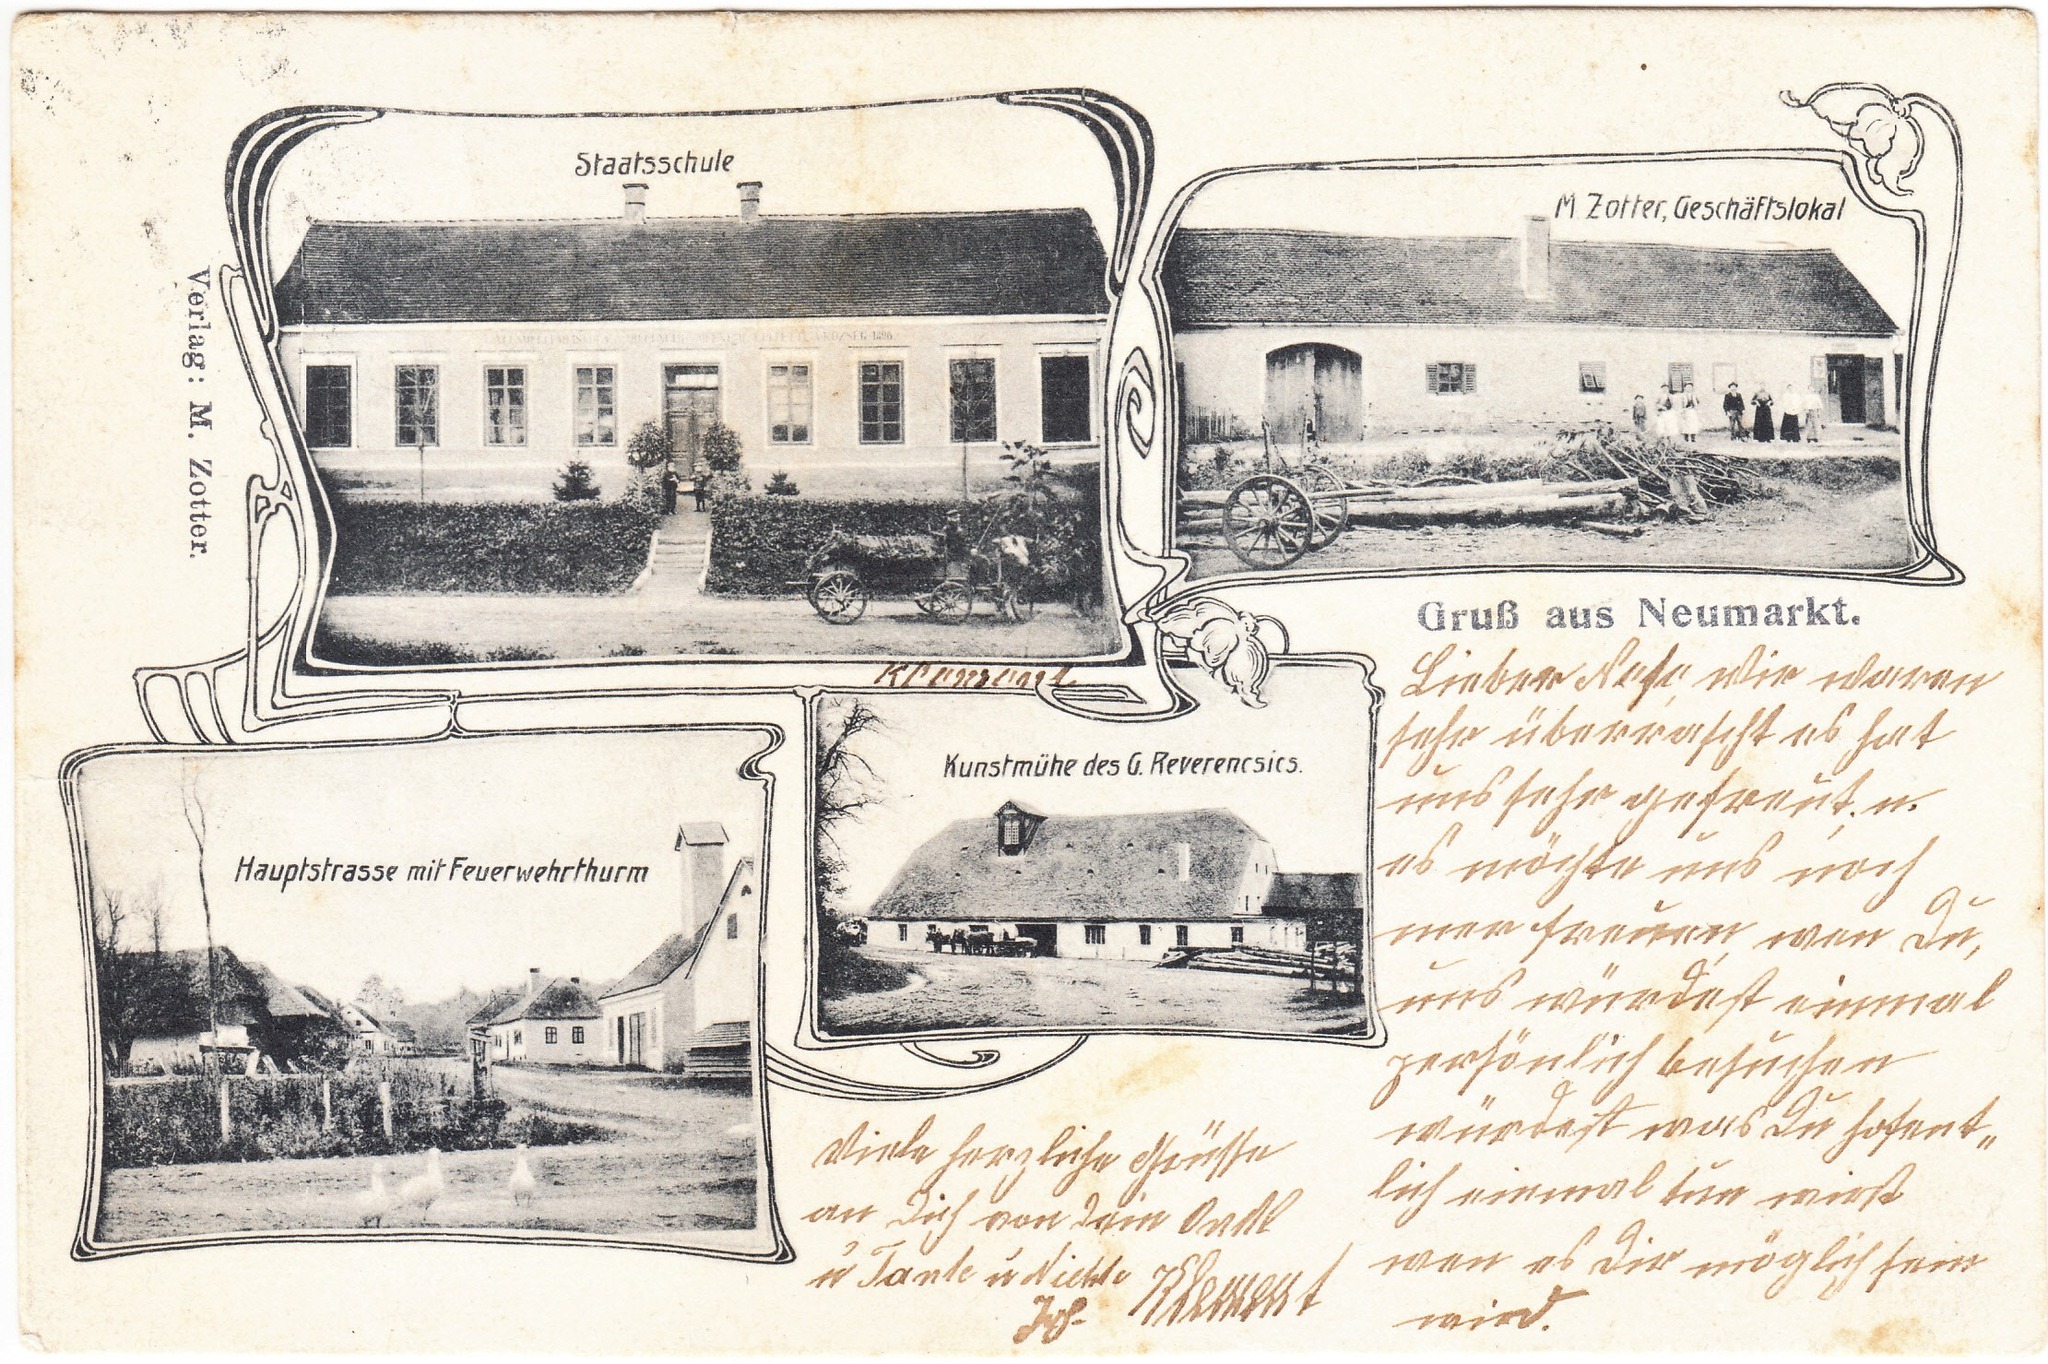 Staatsschule
M Zotter, Geschäftslokal
Verlag: M. Zotter.
Gruß aus Neumarkt.
Klement
Kunstmühe des G. Reverencsics.
Hauptstrasse mit Feuerwehrthurm
Lieber Nefe, Wir waren
sehr überrascht es hat
uns sehr gefreut, u.
es möchte uns noch
mer freuen, wen Du,
uns würdest einmal
persönlich besuchen
würdest was Du hofent„
lich einmal tun wirst
wen es Dir möglich sein
wird.
Viele herzliche Grüsse
an Dich von Dein Onkl
u Tante u Nichte
Joh. Klement